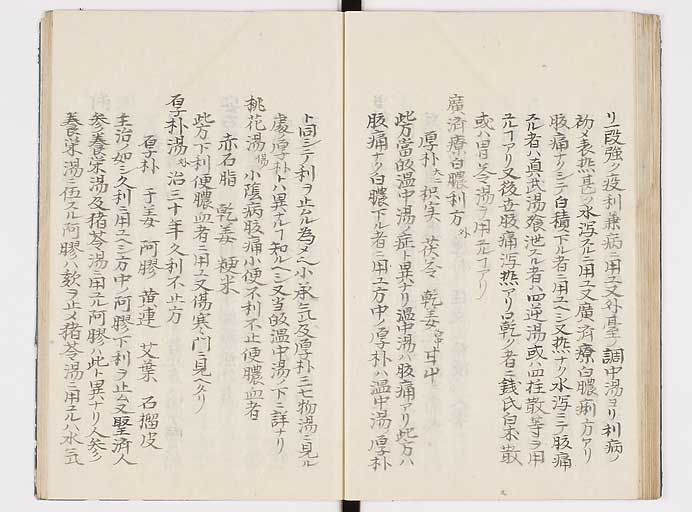 リ一段強ク疫利兼病ニ用ユ又外臺ノ調中湯ヨリ利病ノ
初メ表熱甚ク水瀉スルニ用ユ又廣済療白膿痢方アリ
腹痛ナクシテ白積下ル者ニ用ユヘシ又熱ナク水瀉シテ腹痛
スル者ハ真武湯飧泄スル者ハ四逆湯或ハ桂散等ヲ用
ユルコアリ又後世腹痛瀉熱アリ口乾ク者ニ銭氏白朮散
或ハ胃苓湯ヲ用ユルコアリ
廣済療白膿利方 外
厚朴 枳実 茯苓 乾姜 甘中
此方當的温中湯ノ症ト異ナリ温中湯ハ腹痛アリ此方ハ
腹痛ナク白膿下ル者ニ用ユ方中ノ厚朴ハ温中湯ノ厚朴
ト同シテ利ヲ止ル為メ小承気及厚朴三七物湯ニ見ル
處ノ厚朴ハ異ナルコ知ルヘシ又当的温中湯ノ下ニ詳ナリ
桃花湯 傷 小陰病腹痛小便不利不止便膿血者
赤石脂 乾姜 粳米
此方下利便膿血者ニ用ユ又傷寒ノ門ニ見ヘタリ
厚朴湯 外 治三十年久利不止方
厚朴 干姜 阿膠 黄連 艾葉 石榴皮
主治ノ如ク久利ニ用ユヘシ方中ノ阿膠下利ヲ止ム又聖済人
参養栄湯及猪苓湯ニ用ユル阿膠ハ此ト異ナリ人参
養栄湯ニ伍スル阿膠ハ欬ヲ止メ猪苓湯ニ用ユルハ水気